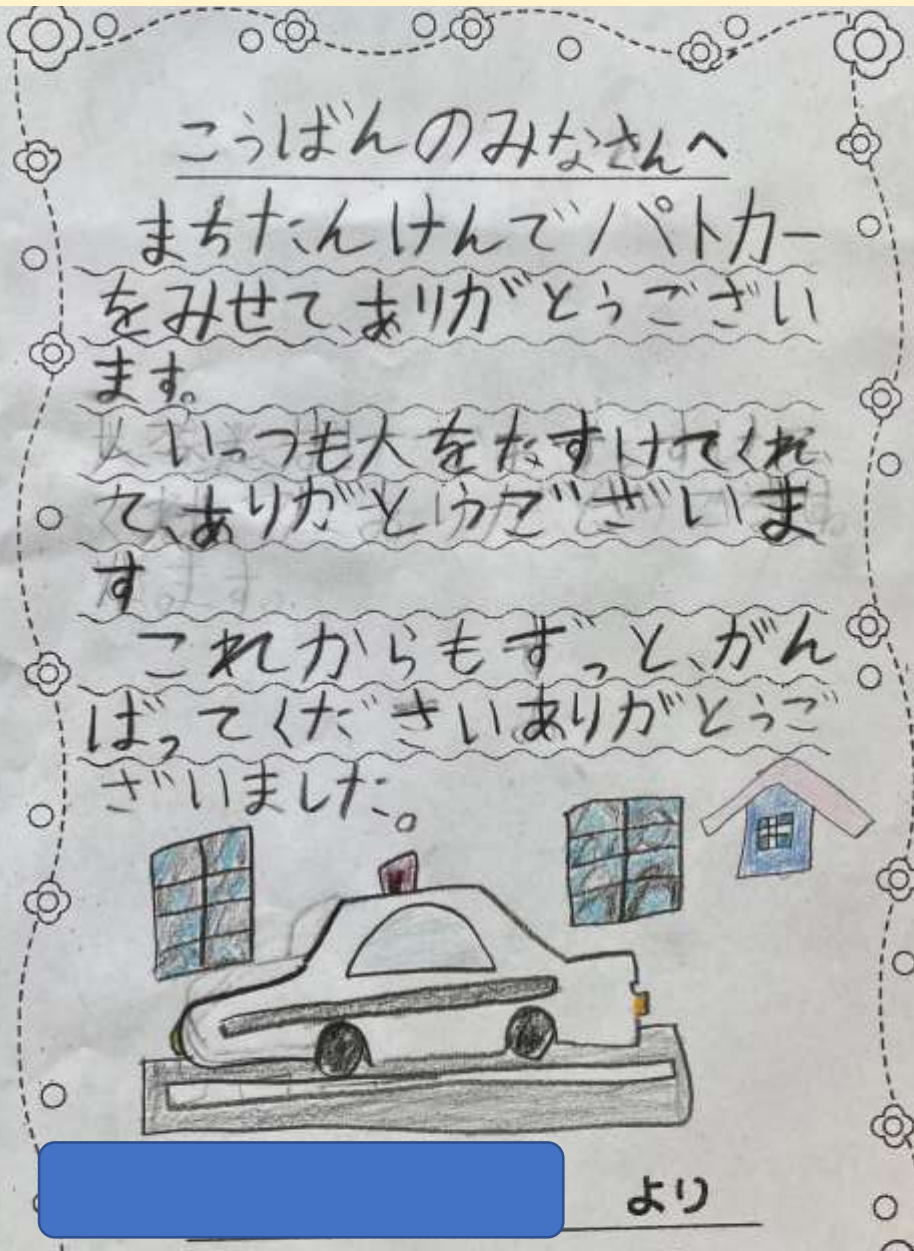 こうばんのみなさんへ
まちたんけんでパトカー
をみせて、ありがとうござい
ます。
いっつも人をたすけてくれ
て、ありがとうございま
す
これからもずっと、がん
ばってくださいありがとうご
ざいました。
より